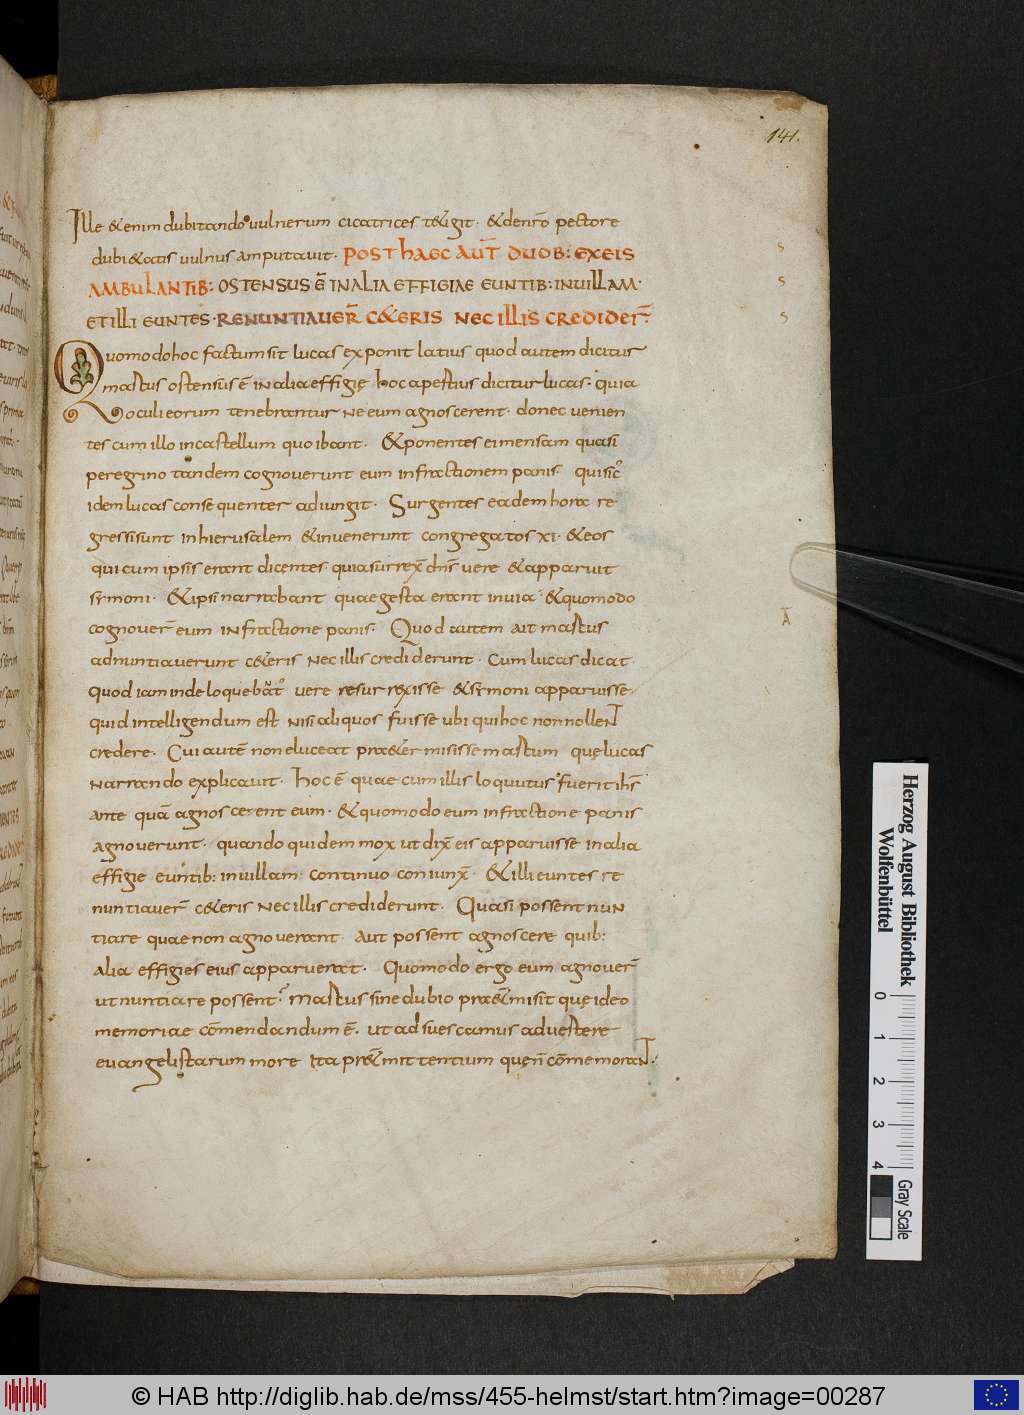 141.
Ille & enim dubitando vulnerum cicatrices t&igit · & de nr̄o pectore
dubi&atis vulnus amputavit · POST HAEC AUT̄ DUOB: EX EIS
AMBULANTIB: OSTENSUS Ē IN ALIA EFFIGIAE EUNTIB: IN VILLAM ·
ET ILLI EUNTES · RENUNTIAVER̄ C&ERIS NEC ILLIS CREDIDER̄ :
Quomodo hoc factum sit lucas exponit latius quod autem dicitur
mastus ostensus ē IN alia effigię hoc apestius dicitur lucas · quia
oculi eorum tenebrantur Ne eum agnoscerent · donec venien
tes cum illo in castellum quo ibant · &ponentes ei mensam quasi
peregrino tandem cognoverunt eum in fractionem panis · qui sic
idem lucas consequenter adiungit · Surgentes eadem hora re
gressi sunt in hierusalem & invenerunt congregatos xi · & eos
qui cum ipsis erant dicentes quia surrex̄ dn̄s vere & apparuit
symoni · & ipsi narrabant quae gesta erant in via · & quomodo
cognover̄ eum IN fractione panis · Quod autem ait mastus
adnuntiaverunt c&eris Nec illis crediderunt · Cum lucas dicat
quod iam inde loquebāt vere resurrexisse & symoni apparuisse ·
quid intelligendum est Nisi aliquos fuisse ubi qui hoc non nolleNT
credere · Cui autē non eluceat prae&ermisisse mastum quę lucas
Narrando explicavit · hoc ē quae cum illis loquutus fuerit ih̄s
Ante quā agnoscerent eum · & quomodo eum in fractione panis
agnoverunt · quando quidem mox ut dix̄ eis apparuisse in alia
effigie euntib: in villam · continuo coniunx̄ · & illi euntes re
nuntiaver̄ c&eris Nec illis crediderunt · Quasi possent nuN
tiare quae non agnoverant · Aut possent agnoscere quib:
alia effigies eius apparuerat · Quomodo ergo eum agnover̄
ut nuntiare possent? Mastus sine dubio prae&misit quę ideo
memoriae cōmendandum ē · ut adsuescamus advestere
evangelistarum more Ita prae&mittentium quę n̄ cōmemoraNT ·
S
S
S
Ā
Herzog August Bibliothek
Wolfenbüttel
0 1 2 3 4
Gray Scale
© HAB http://diglib.hab.de/mss/455-helmst/start.htm?image=00287